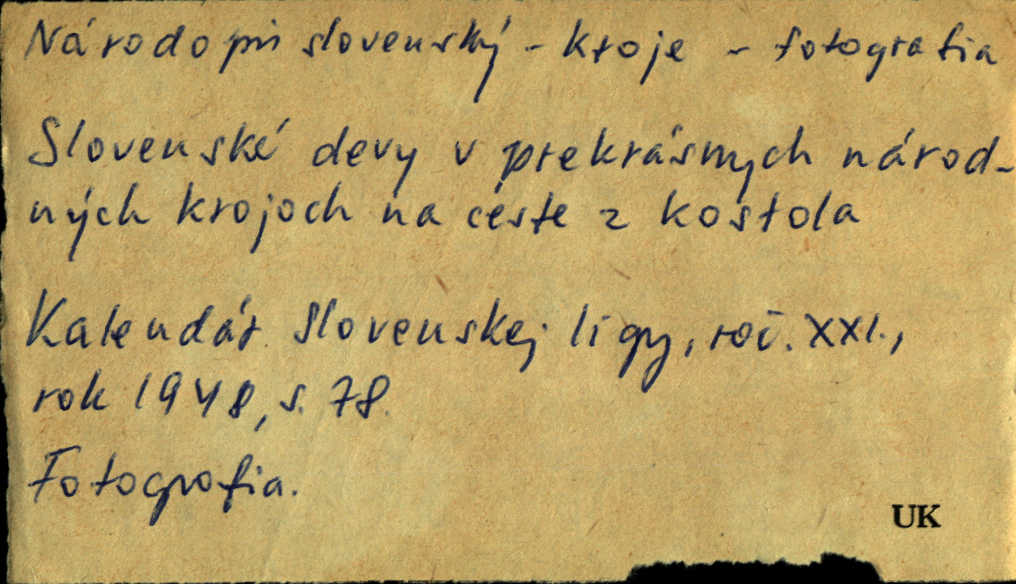 Národopis slovenský - kroje - fotografia
Slovenské devy v prekrásnych národ-
ných krojoch na ceste z kostola
Kalendár Slovenskej ligy, roč. XXI.,
rok 1948, s. 78.
Fotografia.
UK